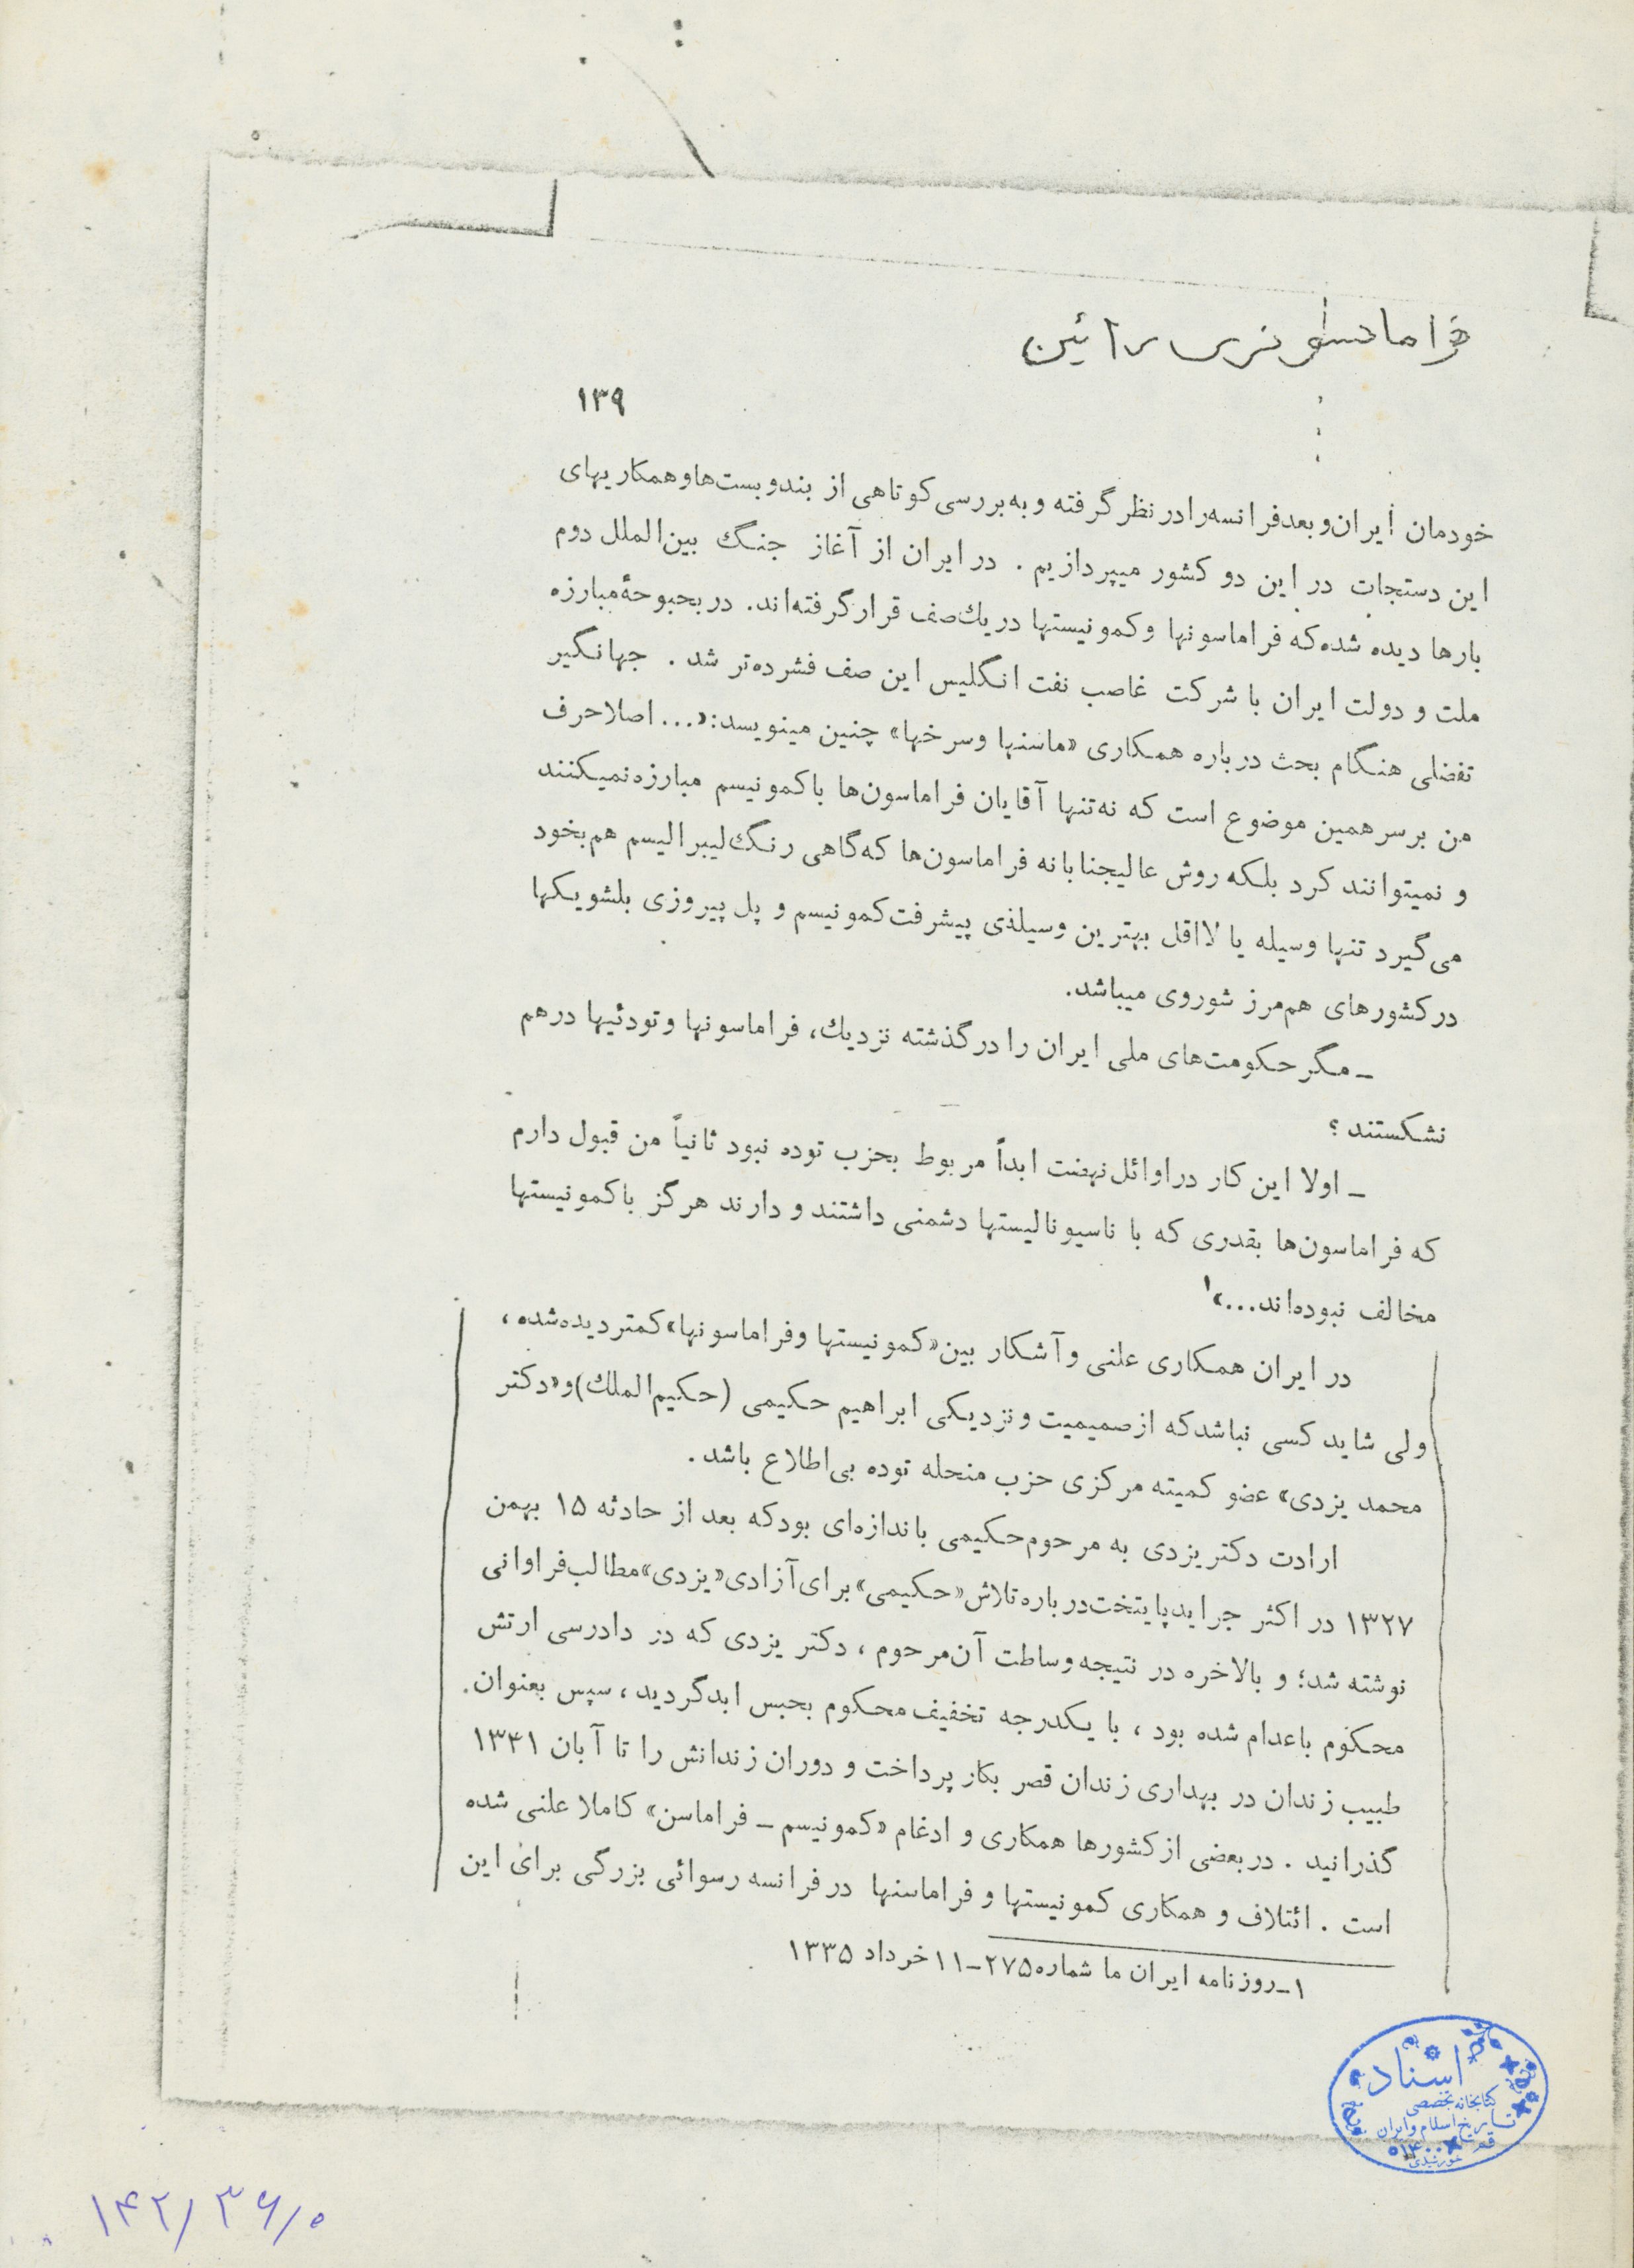 فراماسونری رائین
۱۳۹
خودمان ایران و بعد فرانسه را در نظر گرفته و به بررسی کوتاهی از بند و بست‌ها و همکاریهای
این دستجات در این دو کشور میپردازیم . در ایران از آغاز جنگ بین‌الملل دوم
بارها دیده شده که فراماسونها و کمونیستها در یك صف قرار گرفته‌اند. در بحبوحهٔ مبارزه
ملت و دولت ایران با شرکت غاصب نفت انگلیس این صف فشرده‌تر شد . جهانگیر
تفضلی هنگام بحث درباره همکاری «ماسنها و سرخها» چنین مینویسد: «... اصلا حرف
من بر سر همین موضوع است که نه تنها آقایان فراماسون‌ها با کمونیسم مبارزه نمیکنند
و نمیتوانند کرد بلکه روش عالیجنابانه فراماسون‌ها که گاهی رنگ لیبرالیسم هم بخود
می‌گیرد تنها وسیله یا لااقل بهترین وسیله‌ی پیشرفت کمونیسم و پل پیروزی بلشویکها
در کشورهای هم‌مرز شوروی میباشد.
ـ مگر حکومت‌های ملی ایران را در گذشته نزدیك، فراماسونها و تودئیها در هم
نشکستند ؟
ـ اولا این کار در اوائل نهضت ابداً مربوط بحزب توده نبود ثانیاً من قبول دارم
که فراماسون‌ها بقدری که با ناسیونالیستها دشمنی داشتند و دارند هرگز با کمونیستها
مخالف نبوده‌اند...»۱
در ایران همکاری علنی و آشکار بین «کمونیستها و فراماسونها» کمتر دیده شده ،
ولی شاید کسی نباشد که از صمیمیت و نزدیکی ابراهیم حکیمی (حکیم‌الملك) و «دکتر
محمد یزدی» عضو کمیته مرکزی حزب منحله توده بی‌اطلاع باشد .
ارادت دکتر یزدی به مرحوم حکیمی باندازه‌ای بود که بعد از حادثه ۱۵ بهمن
۱۳۲۷ در اکثر جراید پایتخت درباره تلاش «حکیمی» برای آزادی «یزدی» مطالب فراوانی
نوشته شد؛ و بالاخره در نتیجه وساطت آن مرحوم ، دکتر یزدی که در دادرسی ارتش
محکوم باعدام شده بود ، با یکدرجه تخفیف محکوم بحبس ابد گردید ، سپس بعنوان
طبیب زندان در بهداری زندان قصر بکار پرداخت و دوران زندانش را تا آبان ۱۳۴۱
گذرانید . در بعضی از کشورها همکاری و ادغام «کمونیسم ـ فراماسن» کاملا علنی شده
است . ائتلاف و همکاری کمونیستها و فراماسنها در فرانسه رسوائی بزرگی برای این
۱ـ روزنامه ایران ما شماره ۲۷۵ـ۱۱ خرداد ۱۳۳۵
اسناد
کتابخانه تخصصی
تاریخ اسلام و ایران
قم
۱۴۲/۳۶/۰